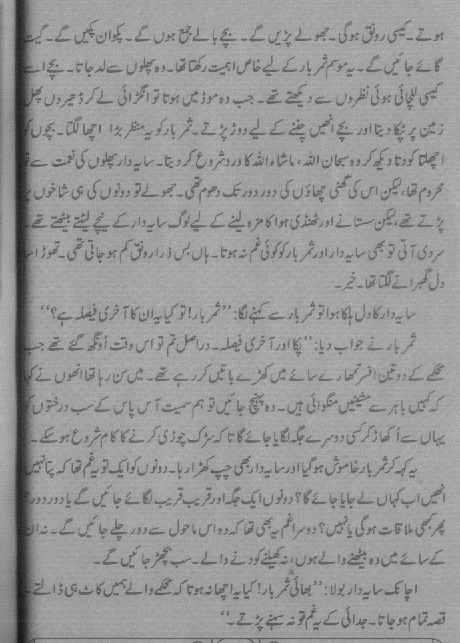 ہوتے۔ کیسی رونق ہوگی۔ جھولے پڑیں گے۔ بچے بالے جمع ہوں گے۔ پکوان پکیں گے۔ گیت
گائے جائیں گے۔ یہ موسم ثمر بار کے لیے خاص اہمیت رکھتا تھا۔ وہ پھلوں سے لد جاتا۔ بچے اسے
کیسی للچائی ہوئی نظروں سے دیکھتے تھے۔ جب وہ موڈ میں ہوتا تو انگڑائی لے کر ڈھیروں پھل
زمین پر ٹپکا دیتا اور بچے انھیں چننے کے لیے دوڑ پڑتے۔ ثمر بار کو یہ منظر بڑا اچھا لگتا۔ بچوں کو
اچھلتا کودتا دیکھ کر وہ سبحان اللہ، ماشاء اللہ کا ورد شروع کر دیتا۔ سایہ دار پھلوں کی نعمت سے تو
محروم تھا، لیکن اس کی گھنی چھاؤں کی دور دور تک دھوم تھی۔ جھولے تو دونوں کی ہی شاخوں پر
پڑتے تھے، لیکن سستانے اور ٹھنڈی ہوا کا مزہ لینے کے لیے لوگ سایہ دار کے نیچے لیٹتے بیٹھتے تھے۔
سردی آتی تو بھی سایہ دار اور ثمر بار کو کوئی غم نہ ہوتا۔ ہاں بس ذرا رونق کم ہو جاتی تھی۔ تھوڑا سا
دل گھبرانے لگتا تھا۔ خیر۔
سایہ دار کا دل ہلکا ہوا تو ثمر بار سے کہنے لگا: ’’ثمر بار! تو کیا یہ ان کا آخری فیصلہ ہے؟‘‘
ثمر بار نے جواب دیا: ’’پکا اور آخری فیصلہ۔ دراصل تم تو اس وقت اُونگھ گئے تھے جب
محکمے کے دو تین افسر تمھارے سائے میں کھڑے باتیں کر رہے تھے۔ میں سن رہا تھا انھوں نے کہا
کہ کہیں باہر سے مشینیں منگوائی ہیں۔ وہ پہنچ جائیں تو ہم سمیت آس پاس کے سب درختوں کو
یہاں سے اُکھاڑ کر کسی دوسرے جگہ لگایا جائے گا تاکہ سڑک چوڑی کرنے کا کام شروع ہو سکے۔
یہ کہہ کر ثمر بار خاموش ہو گیا اور سایہ دار بھی چپ کھڑا رہا۔ دونوں کو ایک تو یہ غم تھا کہ پتا نہیں
انھیں اب کہاں لے جایا جائے گا؟ دونوں ایک جگہ اور قریب قریب لگائے جائیں گے یا دور دور؟
پھر کبھی ملاقات ہوگی یا نہیں؟ دوسرا غم یہ بھی تھا کہ وہ اس ماحول سے دور چلے جائیں گے۔ نہ ان
کے سائے میں وہ بیٹھنے والے ہوں، نہ کھیلنے کودنے والے۔ سب بچھڑ جائیں گے۔
اچانک سایہ دار بولا: ’’بھائی ثمر بار! کیا یہ اچھا نہ ہوتا کہ محکمے والے ہمیں کاٹ ہی ڈالتے۔
قصہ تمام ہو جاتا۔ جدائی کے یہ غم تو نہ سہنے پڑتے۔‘‘